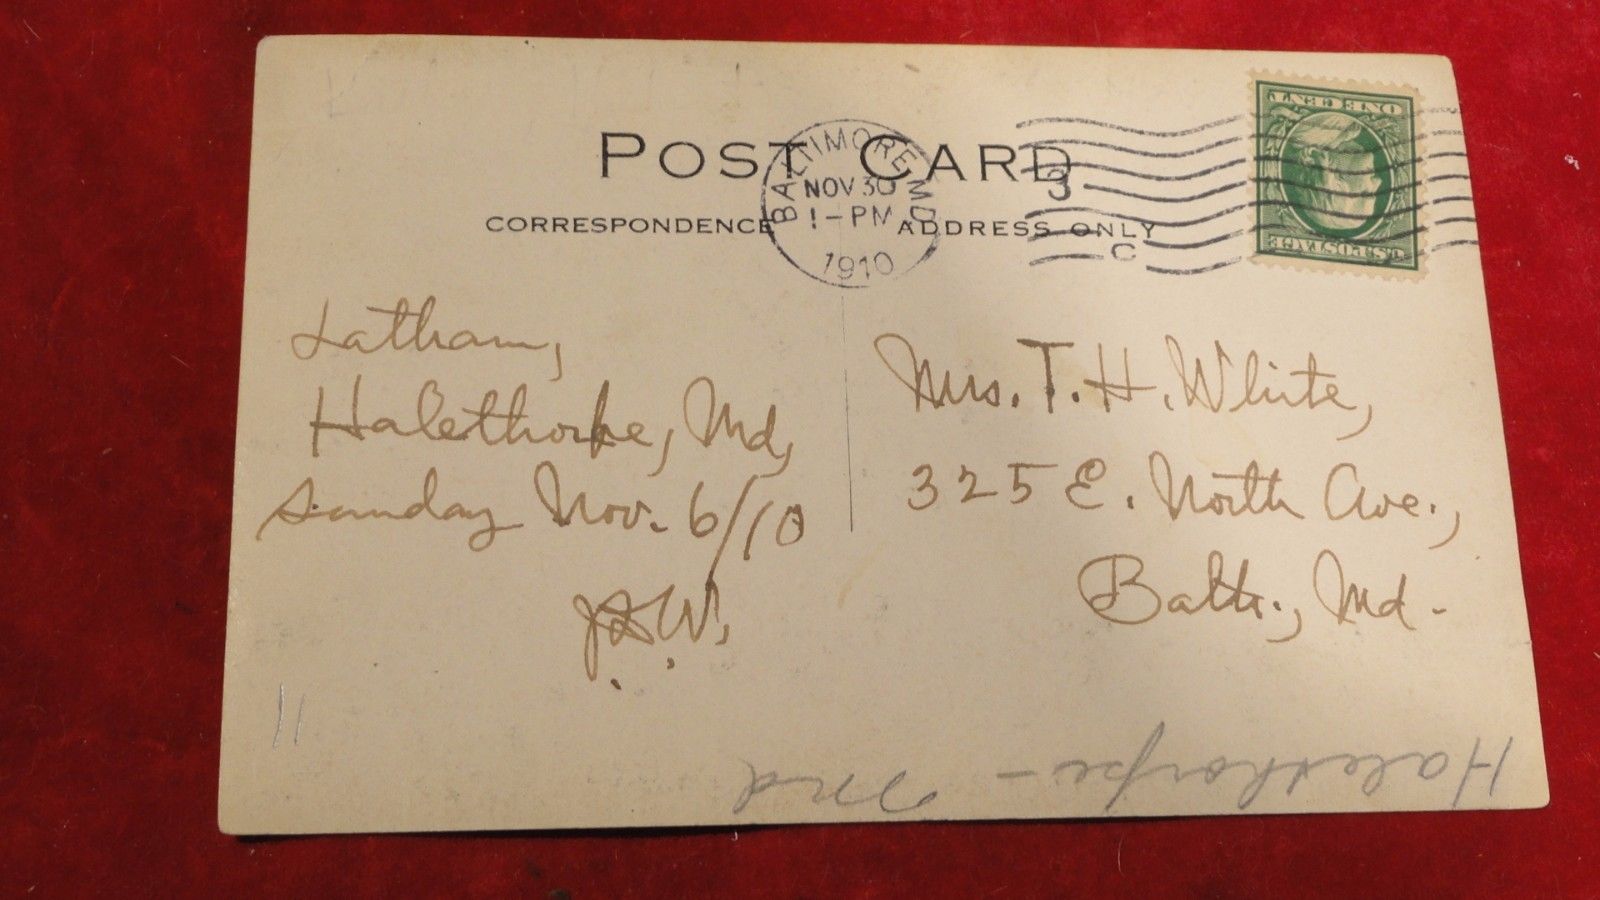 POST CARD
CORRESPONDENCE
ADDRESS ONLY
BALTIMORE, MD
NOV 30
1-PM
1910
3
C
ONE CENT
U.S. POSTAGE
Latham,
Halethorpe, Md,
Sunday Nov. 6/10
Mrs. T. H. White,
325 E. North Ave.,
Balto., Md.
11
Halethorpe - Md